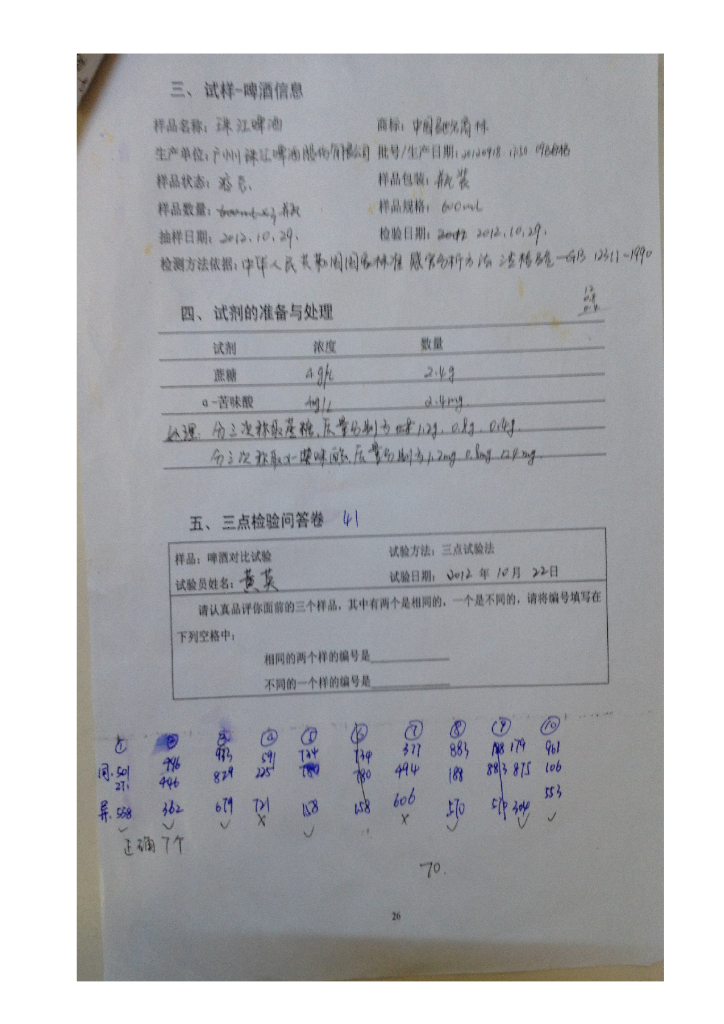 三、试样-啤酒信息
样品名称：珠江啤酒 商标：中国驰名商标
生产单位：广州珠江啤酒股份有限公司 批号/生产日期：20120918 17:30
样品状态：液态. 样品包装：瓶装
样品数量： 样品规格：600mL
抽样日期：2012.10.29. 检验日期：2012.10.29.
检测方法依据：中华人民共和国国家标准 感官分析方法 GB 12311-1990
四、试剂的准备与处理
试剂 浓度 数量
蔗糖 4g/L 2.4g
α-苦味酸 4mg/L 2.4mg
处理：分三次称取蔗糖,质量分别为 1.2g、0.8g、0.4g.
分三次称取α-苦味酸,质量分别为1.2mg 0.8mg 0.4mg
五、三点检验问答卷 41
样品：啤酒对比试验 试验方法：三点试验法
试验员姓名：黄英 试验日期：2012 年 10 月 22 日
请认真品评你面前的三个样品，其中有两个是相同的，一个是不同的，请将编号填写在
下列空格中：
相同的两个样的编号是
不同的一个样的编号是
① ② ③ ④ ⑤ ⑥ ⑦ ⑧ ⑨ ⑩
同. 501 996 993 591 734 734 377 883 179 961
271 446 829 225 780 494 189 883 875 106
异. 558 362 679 721 158 158 606 570 304 553
正确7个
70.
26